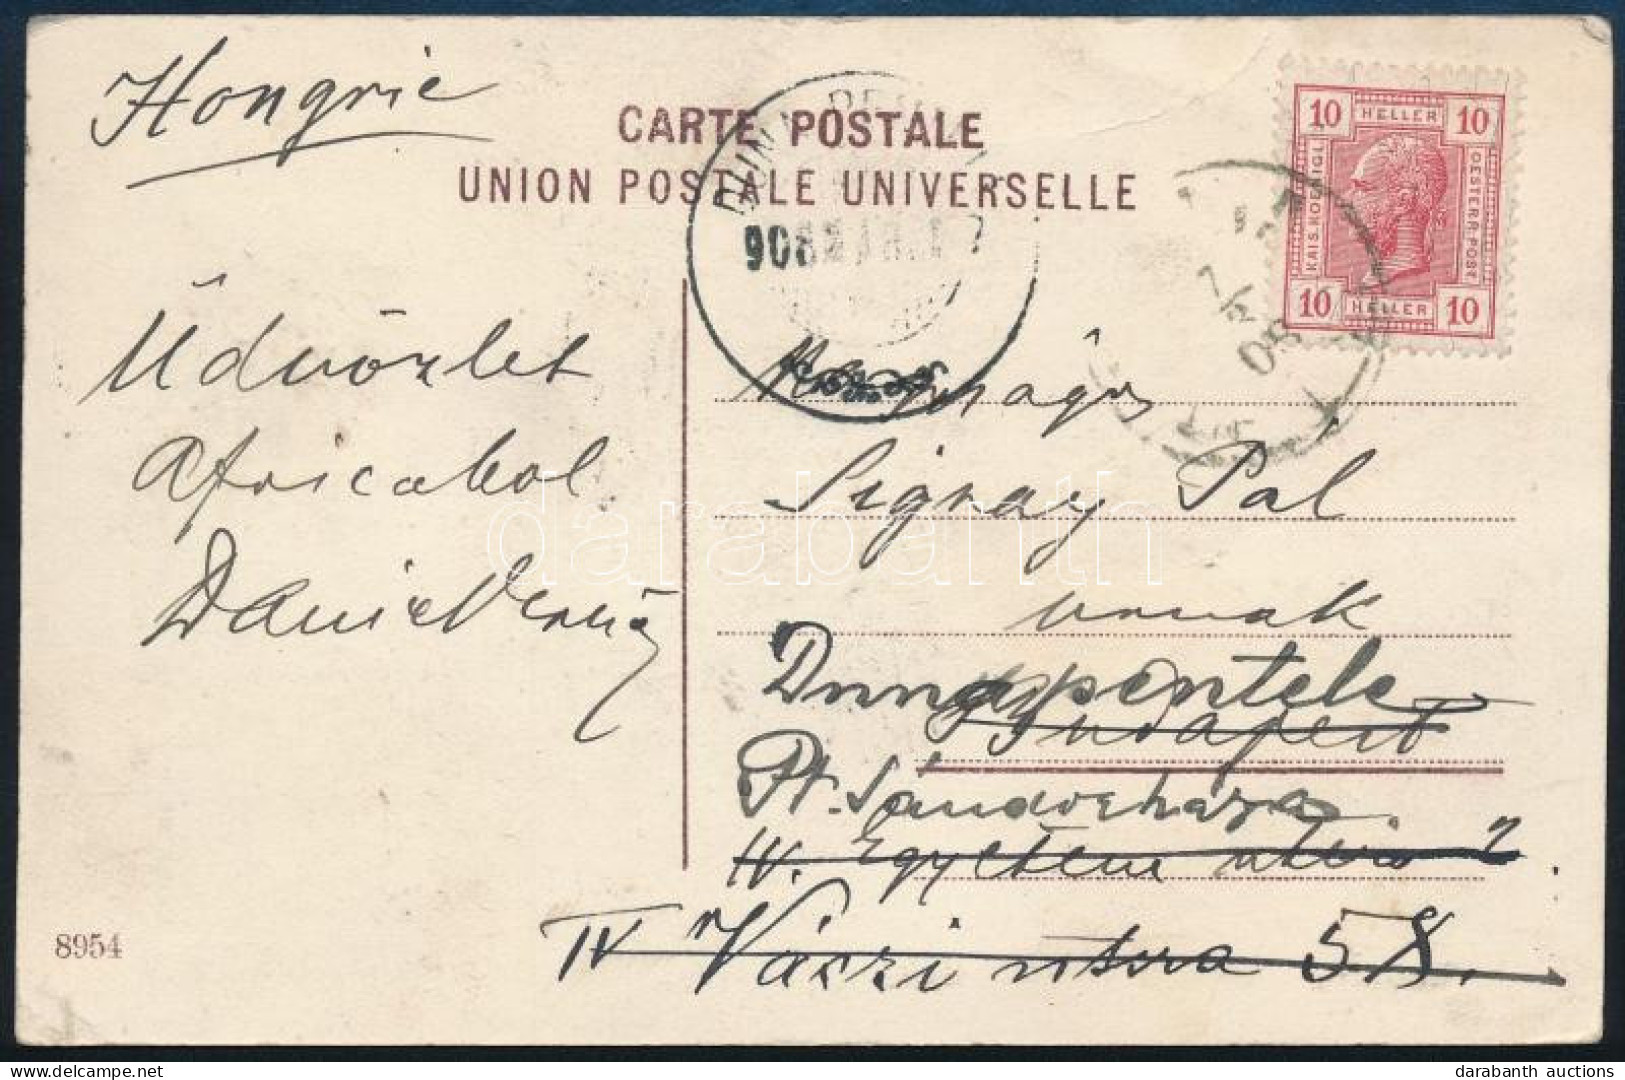 Hongrie
CARTE POSTALE
UNION POSTALE UNIVERSELLE
10 HELLER 10
KAIS. KOENIGL.
OESTERR. POST
10 HELLER 10
908 MÁR. 1 7
05
Üdvözlet
Africabol
Daniel
Sigray Pál
urnak
Dunapentele
Budapest
Pt. Sándorháza
IV. Egyetem utca 2
IV Váczi utcza 58.
8954
darabanth
darabanth auctions